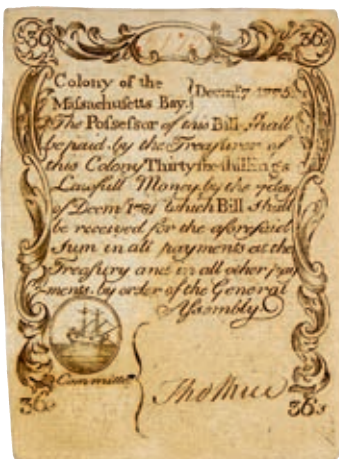 36s 36s
Colony of the
Massachusetts Bay. } Decem.7 1775.
The Possessor of this Bill shall
be paid by the Treasurer of
this Colony Thirty six shillings
Lawfull Money by the 7 day
of Decem.r 1781 which Bill shall
be received for the aforesaid
Sum in all payments at the
Treasury and in all other pay-
ments by order of the General
Assembly.
Committee
36s 36s